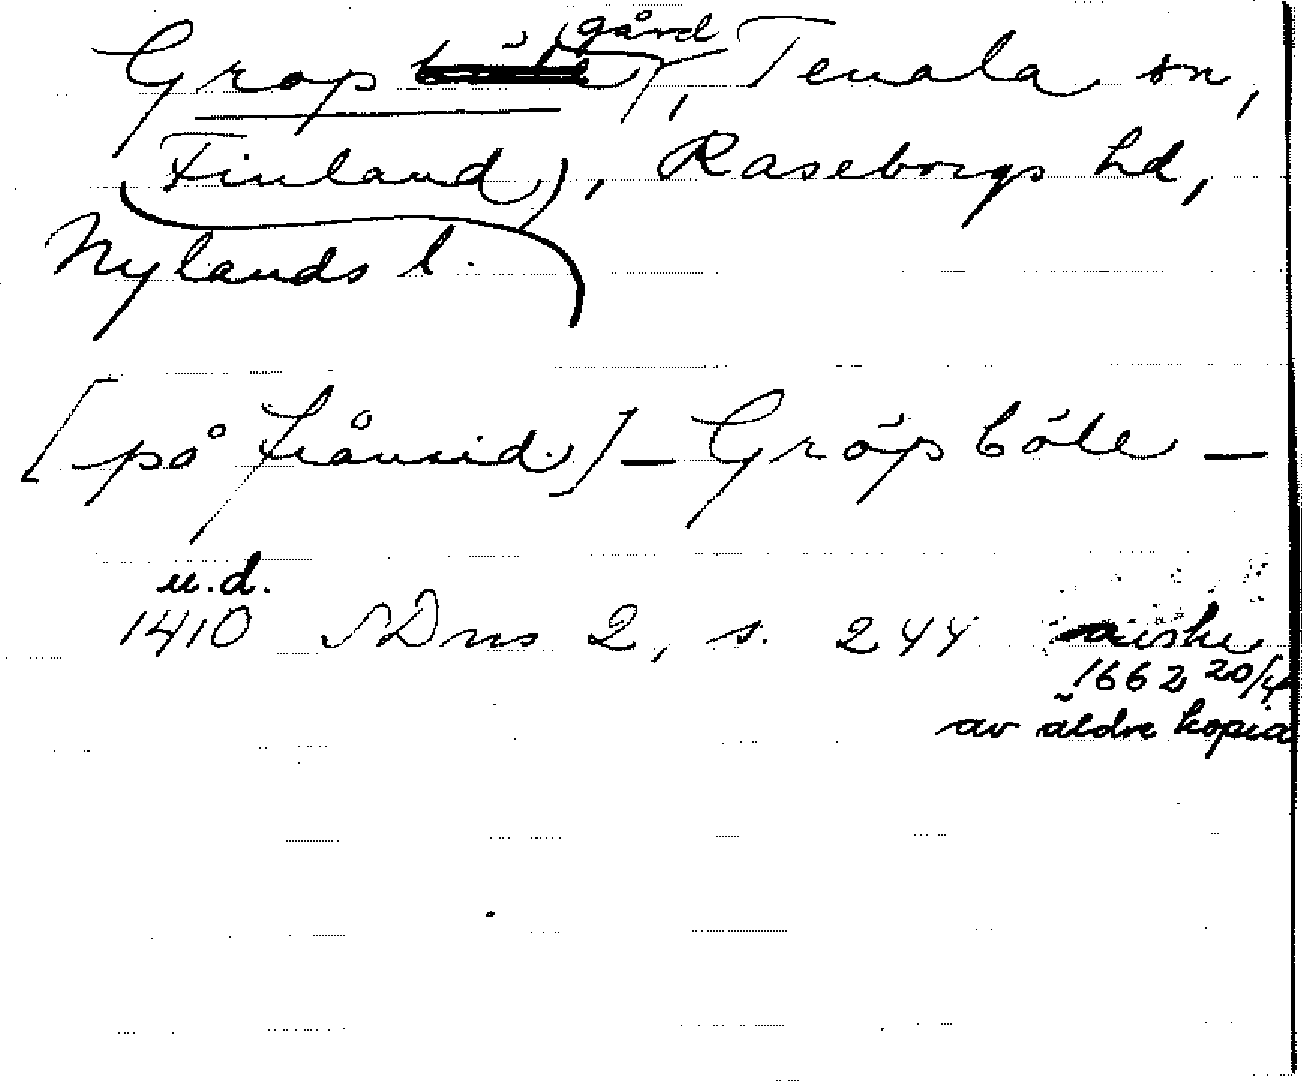 Gropböle, gård, Tenala sn,
Finland, Raseborgs hd,
Nylands l.
[på frånsid.] – Gröpböle –
u.d.
1410 SDns 2, s. 244 avskr
1662 20/4
av äldre kopia